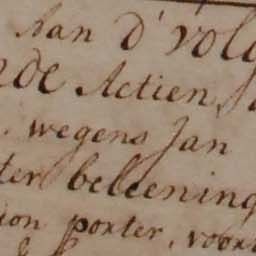 Aan d' volg
nde Actien, Ja
wegens Jan
ter beleening
ion porter, voor